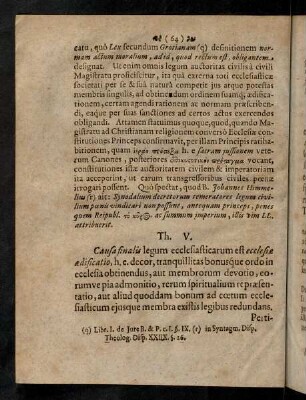 (64)
catu, quô Lex secundum Grotianam (q) definitionem nor-
mam actum moralium, adeò, quod rectum est, obligantem
designat. Ut enim omnis legum auctoritas civilis à civili
Magistratu proficiscitur, ita quà externa toti ecclesiasticæ
societati per se & suâ naturâ competit jus atque potestas
membris singulis, ad obtinendum ordinem suavíq; ædifica-
tionem, certam agendi rationem ac normam præscribendi,
eaque per suas sanctiones ad certos actus exercendos
obligandi. Attamen statuimus quoque, quod, quando Ma-
gistratu ad Christianam religionem conversô Ecclesiæ con-
stitutiones Princeps confirmavit, per istam Principis ratiha-
bitionem, quam h. e. sacram jussionem vete-
rum Canones, posteriores vocant,
constitutiones istæ auctoritatem civilem & imperatoriam
ita acceperint, ut earum transgressoribus civiles pœnæ
irrogari possent. Quô spectat, quod B. Johannes Himme-
lius (r) ait: Synodalium decretorum temeratores legum civi-
lium pœnis vindicari non possent, antequam princeps, penes
quem Reipubl. ac summum imperium, istis vim LL.
attribuerit.
Th. V.
Causa finalis legum ecclesiasticarum est ecclesiæ
ædificatio, h. e. decor, tranquillitas bonusque ordo in
ecclesia obtinendus, aut membrorum devotio, eo-
rumve pia admonitio, rerum spiritualium repræsen-
tatio, aut aliud quoddam bonum ad cœtum eccle-
siasticum ejosque membra existis legibus redundans.
Perti-
(q) Libr. I. de Jure B. & P. c. I. §. IX. (r) in Syntagm. Disp.
Theolog. Disp. XXIX. §. 26.